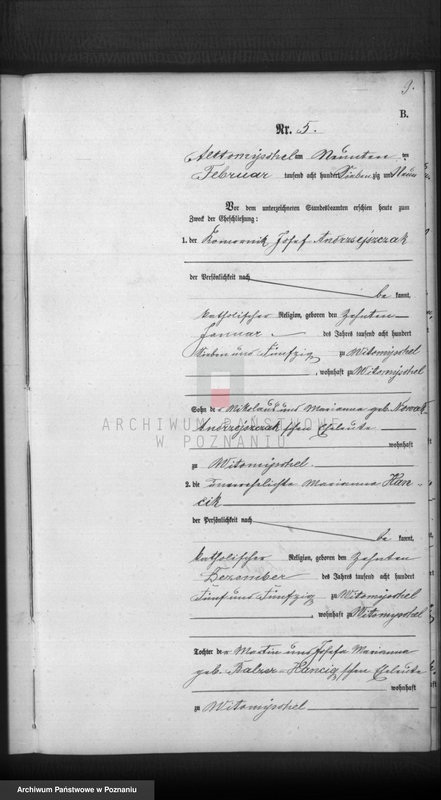 9.
B.
Nr. 5.
Alttomyschel am Neunten ten
Februar tausend acht hundert Sieben zig und Neun
Vor dem unterzeichneten Standesbeamten erschien heute zum
Zweck der Eheschließung:
1. der Komornik Josef Andrzejszczak
der Persönlichkeit nach
be kannt,
katholischer Religion, geboren den Zehnten
Januar des Jahres tausend acht hundert
Sieben und Fünfzig zu Witomyschel
, wohnhaft zu Witomyschel
Sohn der Nikolaus und Marianna geb. Nowak
Andrzejszczak'schen Eheleute
wohnhaft
zu Witomyschel.
2. die Unverehelichte Marianna Han-
cik
der Persönlichkeit nach
be kannt,
katholischer Religion, geboren den Zehnten
Dezember des Jahres tausend acht hundert
Fünf und Fünfzig zu Witomyschel
, wohnhaft zu Witomyschel
Tochter der Martin und Josefa Marianna
geb. Balzer-Hancig'schen Eheleute
wohnhaft
zu Witomyschel
ARCHIWUM PAŃSTWOWE
W POZNANIU
Archiwum Państwowe w Poznaniu